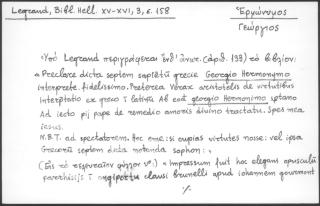 Legrand, Bibl. Hell. XV-XVI, 3, σ. 158
Ἑρμώνυμος
Γεώργιος
Ὑπὸ Legrand περιγράφεται ἐνθ' ἄνωτ. (ἀριθ. 199) τὸ βιβλίον:
« Preclara dicta septem sapientū grecie Georgio Hermonymo
interprete fidelissimo. Preterea Verax aristotelis de virtutibus
interptatio ex greco ī latinū Ab eodē georgio Hermonimo sptano
Ad iecto pij pape de remedio amoris divino tractatu. Spes mea
iesus.
N.B.T. ad spectatorem. Hec eme: si cupias virtutes nosse: vel ipsa
Grecorū septem dicta notanda sophon: »
(Εἰς τὸ τελευταῖον φύλλον vº.) « Impressum fuit hoc elegans opusculū
parrhisijs ī clausi brunelli apud iohannem gourmont